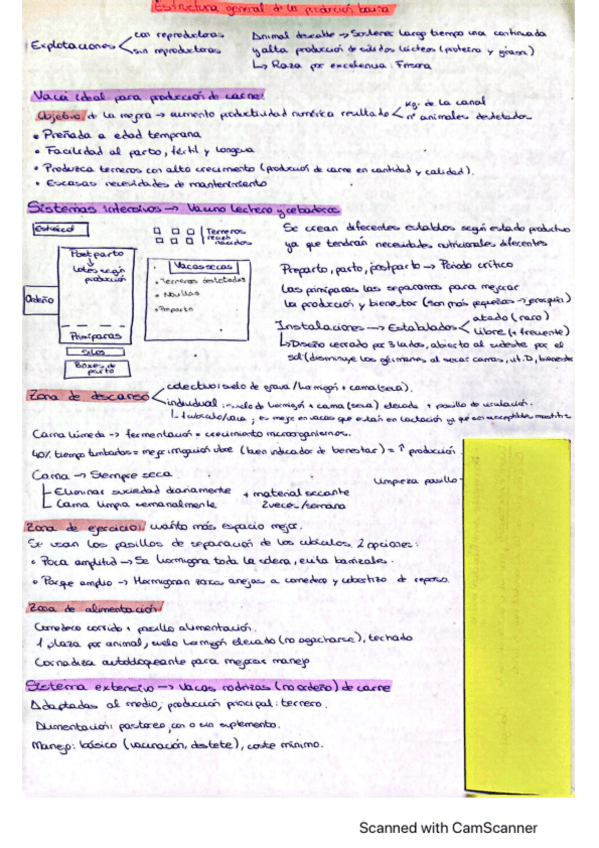 Estructura general de la producción bovina
Explotaciones
con reproductoras
sin reproductoras
Animal deseable → Sostener largo tiempo una continuada
y alta producción de sólidos lácteos (proteína y grasa)
↳ Raza por excelencia: Frisona
Vaca ideal para producción de carne:
Objetivo de la mejora → aumento productividad numérica resultado
kg. de la canal
nº animales destetados
• Preñada a edad temprana
• Facilidad al parto, fértil y longeva
• Produzca terneros con alto crecimiento (producción de carne en cantidad y calidad).
• Escasas necesidades de mantenimiento
Sistemas intensivos → Vacuno lechero y cebaderos
Estiércol
Terneros recién nacidos
Postparto
↓
Lotes según
producción
Ordeño
Primíparas
Silos
Boxes de
parto
Vacas secas
• Terneras destetadas
• Novillas
• Preparto
Se crean diferentes establos según estado productivo
ya que tendrán necesidades nutricionales diferentes
Preparto, parto, postparto → Periodo crítico
Las primíparas las separamos para mejorar
la producción y bienestar (son más pequeñas →
Instalaciones → Estabulados
atado (raro)
Libre (+ frecuente)
↳ Diseño cerrado por 3 lados, abierto al sudeste por el
sol (disminuye los gérmenes al secar camas, vit. D, bienestar
Zona de descanso
colectivo: suelo de grava/hormigón + cama (seca).
individual: suelo de hormigón + cama (seca) elevada + pasillo de circulación.
↳ 1 cubículo/vaca; es mejor en vacas que están en lactación ya que son susceptibles mastitis
Cama húmeda → fermentación = crecimiento microorganismos.
40% tiempo tumbados = mejor irrigación ubre (buen indicador de bienestar) = ↑ producción.
Cama → Siempre seca
Eliminar suciedad diariamente
Cama limpia semanalmente
+ material secante
2 veces/semana
Limpieza pasillo
Zona de ejercicio: cuanto más espacio mejor.
Se usan los pasillos de separación de los cubículos. 2 opciones:
• Poca amplitud → Se hormigona toda la solera, evita barrizales.
• Parque amplio → Hormigonan zonas anejas a comedero y cobertizo de reposo.
Zona de alimentación
Comedero corrido + pasillo alimentación.
1 plaza por animal, suelo hormigón elevado (no agacharse), techado
Cornadiza autobloqueante para mejorar manejo
Sistema extensivo → Vacas nodrizas (no ordeño) de carne
Adaptadas al medio, producción principal: ternero.
Alimentación: pastoreo, con o sin suplemento.
Manejo: básico (vacunación, destete), coste mínimo.
Scanned with CamScanner